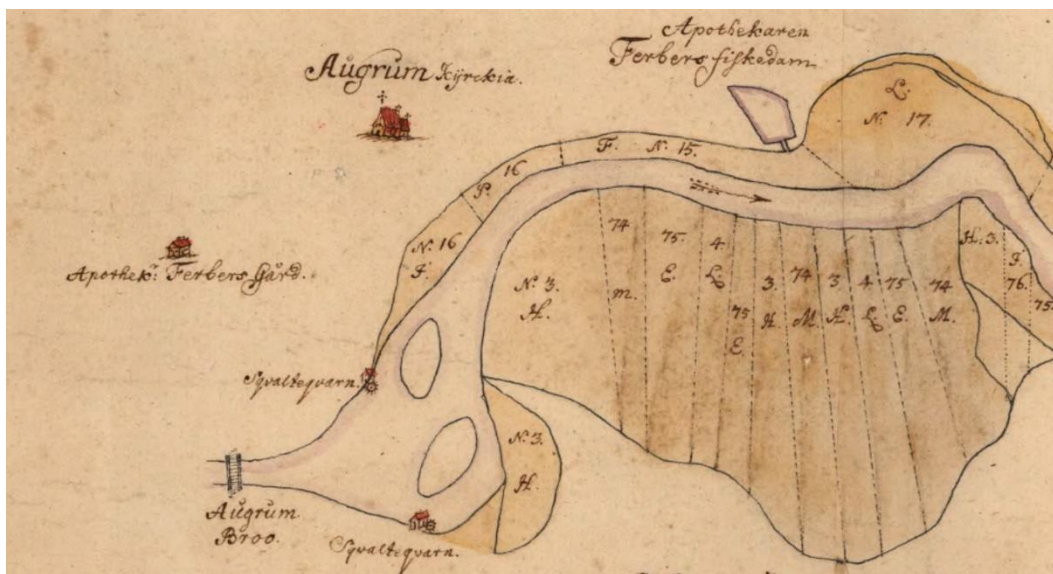 Apothekaren
Ferbers fiskedam
Augrum Kÿrckia.
L.
N. 17.
F. N. 15.
P. 16
N. 16
F.
Apothek: Ferbers Gård.
74
m.
75.
E
4
L
75
E.
3
H
74
M.
3
H.
4
L
75
E.
74
M.
H. 3.
F.
76.
75
N. 3.
H.
Sqvalteqvarn.
N. 3.
H.
Augrum
Broo.
Sqvalteqvarn.